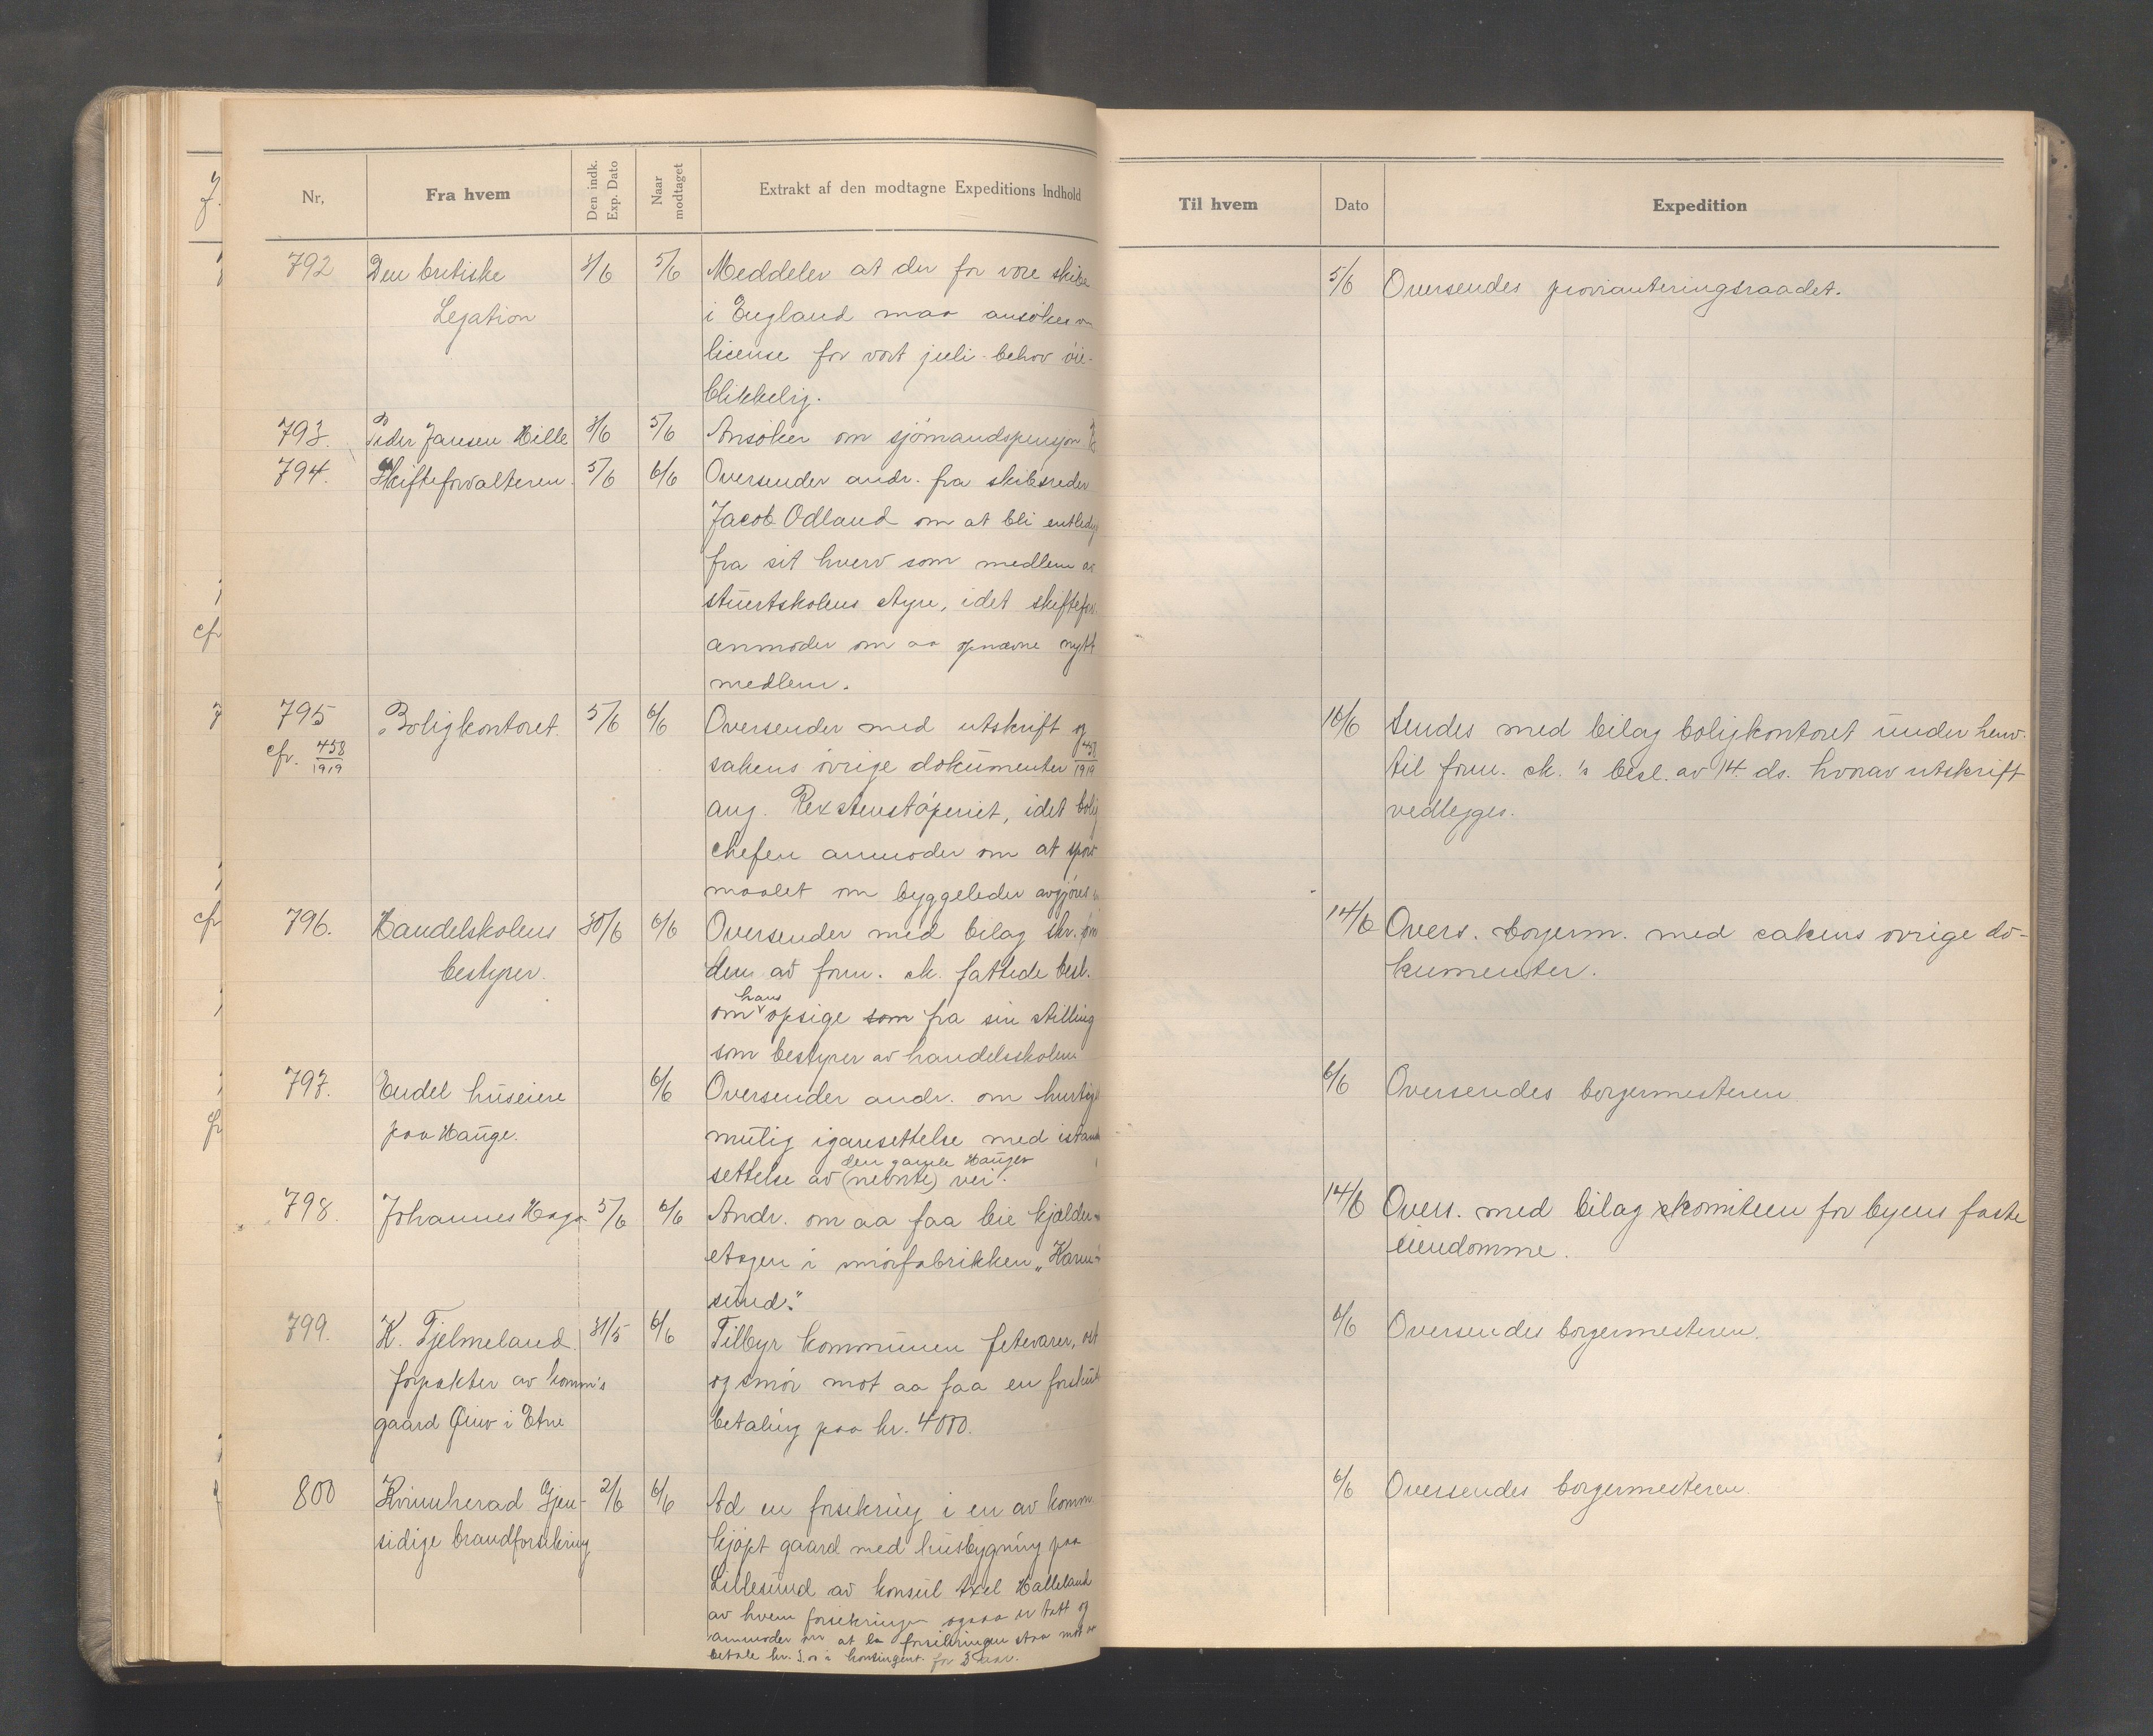 Nr,
Fra hvem
Den indk. Exp. Dato
Naar modtaget
Extrakt af den modtagne Expeditions Indhold
Til hvem
Dato
Expedition
792
Den britiske
Legation
3/6
5/6
Meddeler at der for vore skibe
i England maa ansökes om
license for vort juli-behov öie-
blikkelig.
5/6
Oversendes provianteringsraadet.
793.
Peder Jansen Hille
3/6
5/6
Ansöker om sjömandspensjon
794.
Skifteforvalteren.
5/6
6/6
Oversender andr. fra skibsreder
Jacob Odland om at bli
fra sit hverv som medlem av
stuertskolens styre, idet skiftefor.
anmoder om aa opnævne nytt
medlem.
795
cfr. 458/1919
Boligkontoret.
5/6
6/6
Oversender med utskrift og
sakens övrige dokumenter 458/1919
ang. Rex stenstöperiet, idet bolig
chefen anmoder om at spörs
maalet om byggeleder avgjöres
16/6
Sendes med bilag boligkontoret under henv.
til form. sk.'s besl. av 14. ds. hvorav utskrift
vedlegges.
796.
Handelskolens
bestyrer.
30/6
6/6
Oversender med bilag skr.
den av form. sk. fattede besl.
om hans opsige som fra sin stilling
som bestyrer av handelsskolen
14/6
Overs. borgerm. med sakens övrige do-
kumenter.
797.
Endel huseiere
paa Hauge.
6/6
Oversender andr. om hurtigst
mulig igangsettelse med istand
settelse av (nevnte) den gamle Hauges vei.
6/6
Oversendes borgermesteren
798
Johannes Haga
5/6
6/6
Andr. om aa faa leie kjelder-
etagen i smörfabrikken "Karm-
sund."
14/6
Overs. med bilag komiteen for byens faste
eiendomme.
799.
K. Tjelmeland.
forpakter av komm's
gaard i Etne
31/5
6/6
Tilbyr kommunen fetevarer, ost
og smör mot aa faa en forskud
betaling paa kr. 4000.
6/6
Oversendes borgermesteren.
800
Kvinnherad Gjen-
sidige brandforsikring
2/6
6/6
Ad en forsikring i en av komm.
kjöpt gaard med husbygning paa
Lillesund av konsul Axel Halleland
av hvem forsikringen ogsaa er tatt og
anmoder om at la forsikringen staa mot at
betale kr. i kontingent for 3 aar.
6/6
Oversendes borgermesteren.